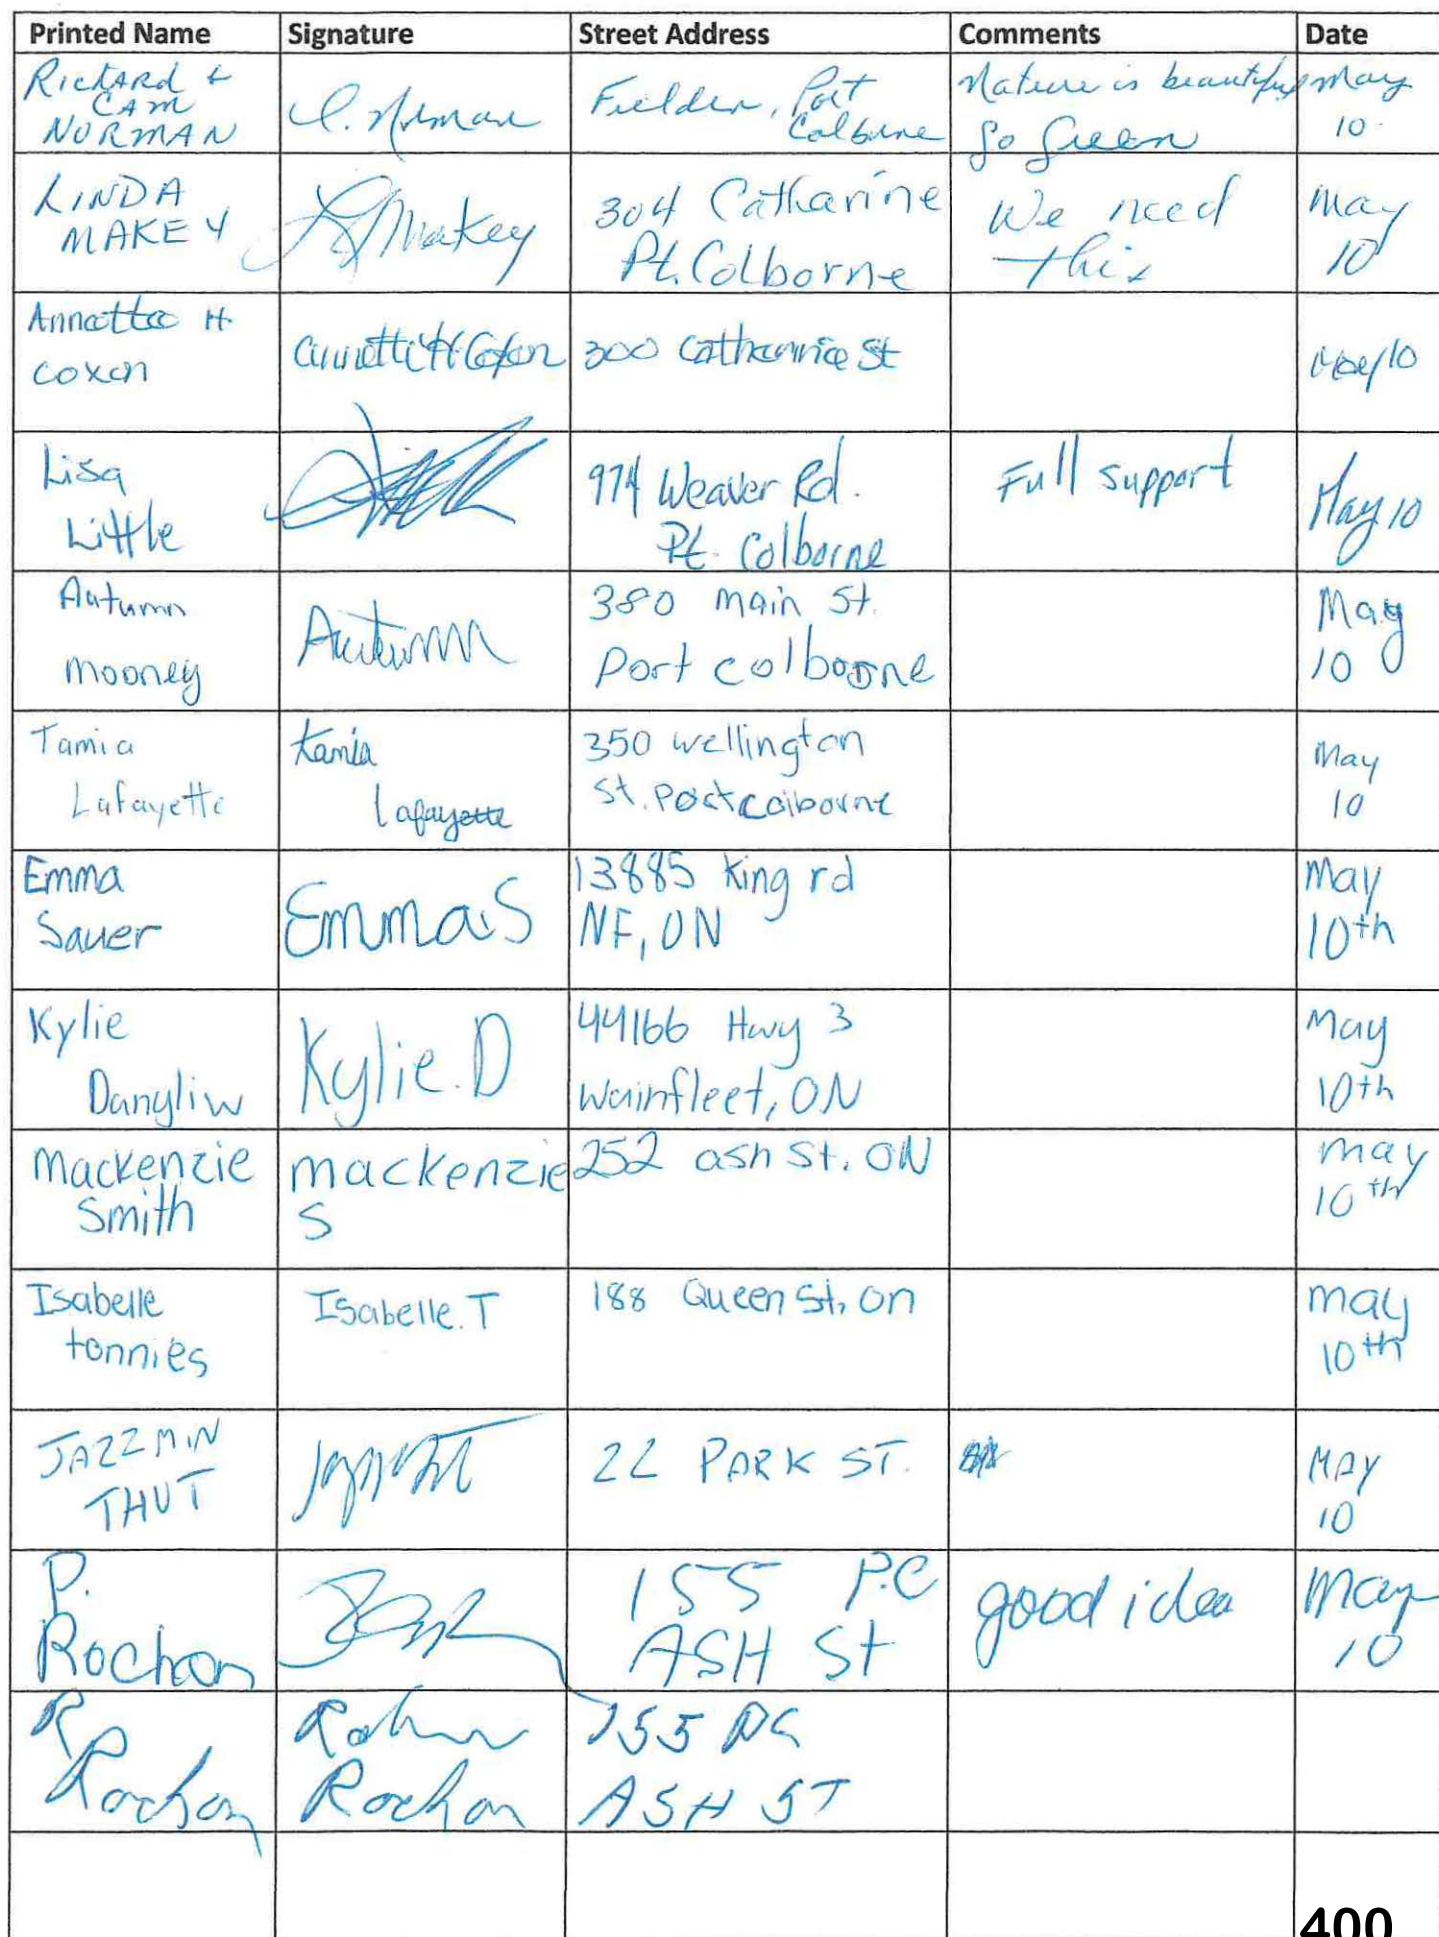 Printed Name Signature Street Address Comments Date
Richard &
CAM
NORMAN
C. Norman
Fielden, Port
Colborne
Nature is beautiful
Go Green
May
10
LINDA
MAKEY
L Makey
304 Catharine
Pt. Colborne
We need
this
May
10
Annette H.
Coxon
Annette H Coxon
300 Catharine St
May 10
Lisa
Little
974 Weaver Rd.
Pt. Colborne
Full support
May 10
Autumn
Mooney
Autumn
380 main St.
Port colborne
May
10
Tamia
Lafayette
Tamia
Lafayette
350 wellington
St. Port colborne
May
10
Emma
Sauer
Emma.S
13885 King rd
NF, ON
May
10th
Kylie
Danyliw
Kylie.D
44166 Hwy 3
Wainfleet, ON
May
10th
Mackenzie
Smith
mackenzie
S
252 ash St. ON
may
10th
Isabelle
tonnies
Isabelle.T
188 Queen St, on
may
10th
JAZZMIN
THUT
22 PARK ST.
MAY
10
P.
Rochon
155 P.C
ASH St
good idea
May
10
R
Rochon
Rochon
155 PC
ASH ST
400